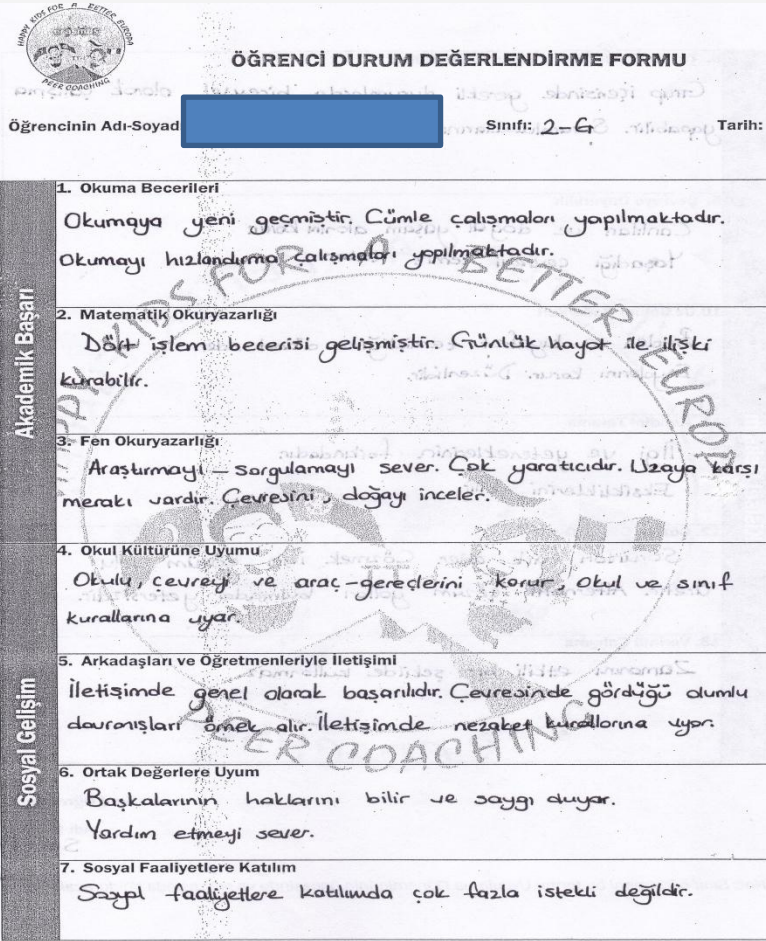 HAPPY KIDS FOR A BETTER EUROPA
PEER COACHING
ÖĞRENCİ DURUM DEĞERLENDİRME FORMU
Öğrencinin Adı-Soyad
Sınıfı: 2-G
Tarih:
Akademik Başarı
1. Okuma Becerileri
Okumaya yeni geçmiştir. Cümle çalışmaları yapılmaktadır.
Okumayı hızlandırma çalışmaları yapılmaktadır.
2. Matematik Okuryazarlığı
Dört işlem becerisi gelişmiştir. Günlük hayat ile ilişki
kurabilir.
3. Fen Okuryazarlığı
Araştırmayı - sorgulamayı sever. Çok yaratıcıdır. Uzaya karşı
merakı vardır. Çevresini, doğayı inceler.
4. Okul Kültürüne Uyumu
Okulu, çevreyi ve araç-gereçlerini korur, okul ve sınıf
kurallarına uyar.
Sosyal Gelişim
5. Arkadaşları ve Öğretmenleriyle İletişimi
İletişimde genel olarak başarılıdır. Çevresinde gördüğü olumlu
davranışları örnek alır. İletişimde nezaket kurallarına uyar.
6. Ortak Değerlere Uyum
Başkalarının haklarını bilir ve saygı duyar.
Yardım etmeyi sever.
7. Sosyal Faaliyetlere Katılım
Sosyal faaliyetlere katılımda çok fazla istekli değildir.
HAPPY KIDS FOR A BETTER EUROPA
PEER COACHING